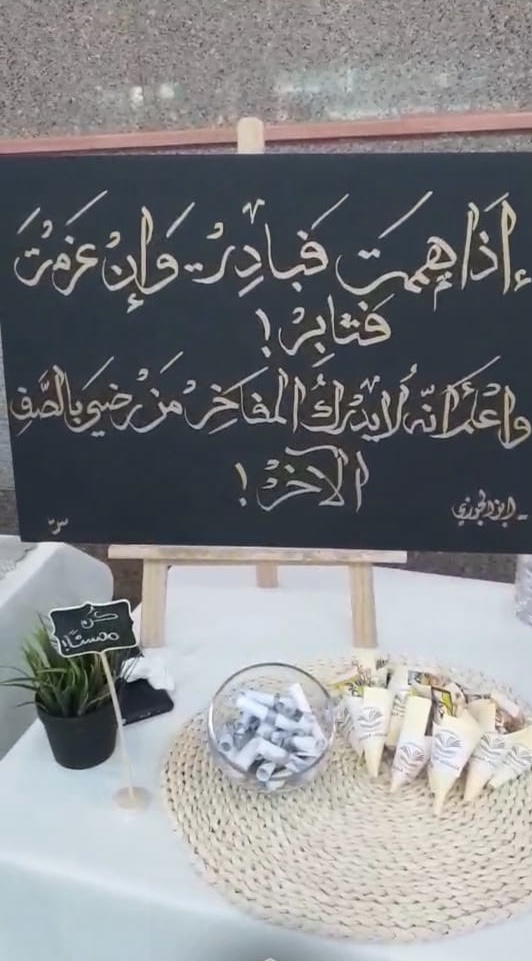 إِذَا هممت فَبادِرْ وَإِنْ عَزَمْتَ
فَثابِرْ!
واعْلَمْ أَنّه لَا يدْرِكُ المفَاخِرْ مَنْ رضيَ بالصَّفِ
الآخرْ!
- ابن الجوزي
كُن